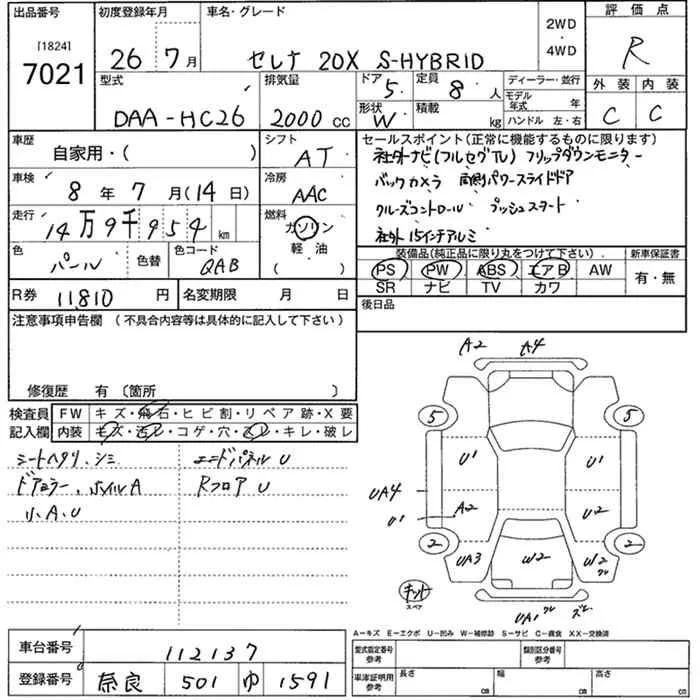 出品番号 初度登録年月 車名・グレード 2WD・4WD 評価点
[1824]
7021 26年7月 セレナ 20X S-HYBRID R
型式 排気量 ドア 5 定員 8人 ディーラー・並行 外装 内装
DAA-HC26 2000cc 形状 W 積載 kg モデル年式 年 C C
ハンドル 左・右
車歴 シフト セールスポイント(正常に機能するものに限ります)
自家用・( ) AT 社外ナビ(フルセグTV) フリップダウンモニター
車検 冷房 バックカメラ 両側パワースライドドア
8年7月(14日) AAC クルーズコントロール プッシュスタート
走行 燃料 社外15インチアルミ
14万9千954km ガソリン
軽油
( )
色 色替 色コード 装備品(純正品に限り丸をつけて下さい) 新車保証書
パール QAB PS PW ABS エアB AW 有・無
SR ナビ TV カワ
R券 11,810円 名変期限 月 日 後日品
注意事項申告欄 (不具合内容等は具体的に記入して下さい)
修復歴 有 〔箇所 〕
検査員 FW キズ・飛石・ヒビ割・リペア跡・X要
記入欄 内装 キズ・汚レ・コゲ・穴・スレ・キレ・破レ
シートヘタリ、シミ エンドパネルU
ドアミラー、ホイルA RフロアU
小、A、U
A2 A4
5 5
U1 U1
UA4
U1 A2 U2
2 2
UA3 W2 W2
キット
スペア
UA1
A-キズ E-エクボ U-凹み W-補修跡 S-サビ C-腐食 XX-交換済
車台番号 112137 型式指定番号 参考 類別区分番号 参考
登録番号 奈良 501 ゆ 1591 車庫証明用 参考 長さ cm 幅 cm 高さ cm